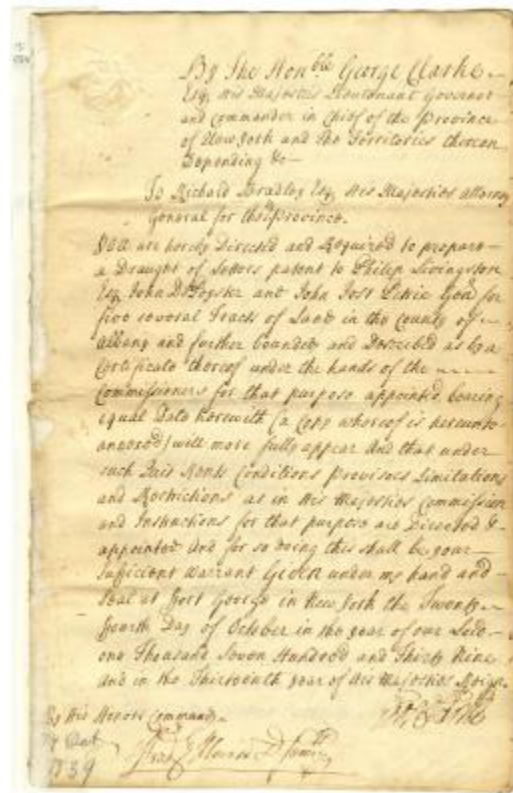 By The Honble George Clarke
Esq. His Majesties Lieutenant Governor
and Commander in Chief of the Province
of New York and The Territories thereon
Depending &c
To Richard Bradley Esq. His Majesties Attorney
General for the Province.
You are hereby Directed and Required to prepare
a Draught of Letters patent to Philip Livingston
Esq. John DePeyster and John Jost Petrie Gen. for
five several Tracts of Land in the County of
Albany and further bounded and Described as by a
Certificate thereof under the hands of the
Commissioners for that purpose appointed bearing
equal Date herewith (a Copy whereof is hereunto
annexed) will more fully appear And that under
such Quit Rents Conditions Provisoes Limitations
and Restrictions as in His Majesties Commission
and Instructions for that purpose are Directed &
appointed And for so doing this shall be your
Sufficient Warrant Given under my hand and
Seal at Fort George in New York the Twenty
fourth Day of October in the year of our Lord
one Thousand Seven Hundred and Thirty Nine
And in the Thirteenth year of His Majesties Reign
By His Honors Command
24 Oct
1739